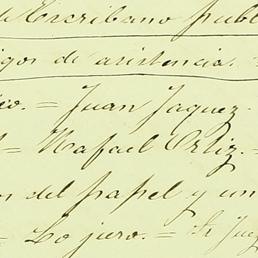 de Escribano publ
igos de asistencia. =
co. = Juan Jaquez.
= Rafael Ortiz. =
os del papel y un
= Lo juro. = Fr Jaq